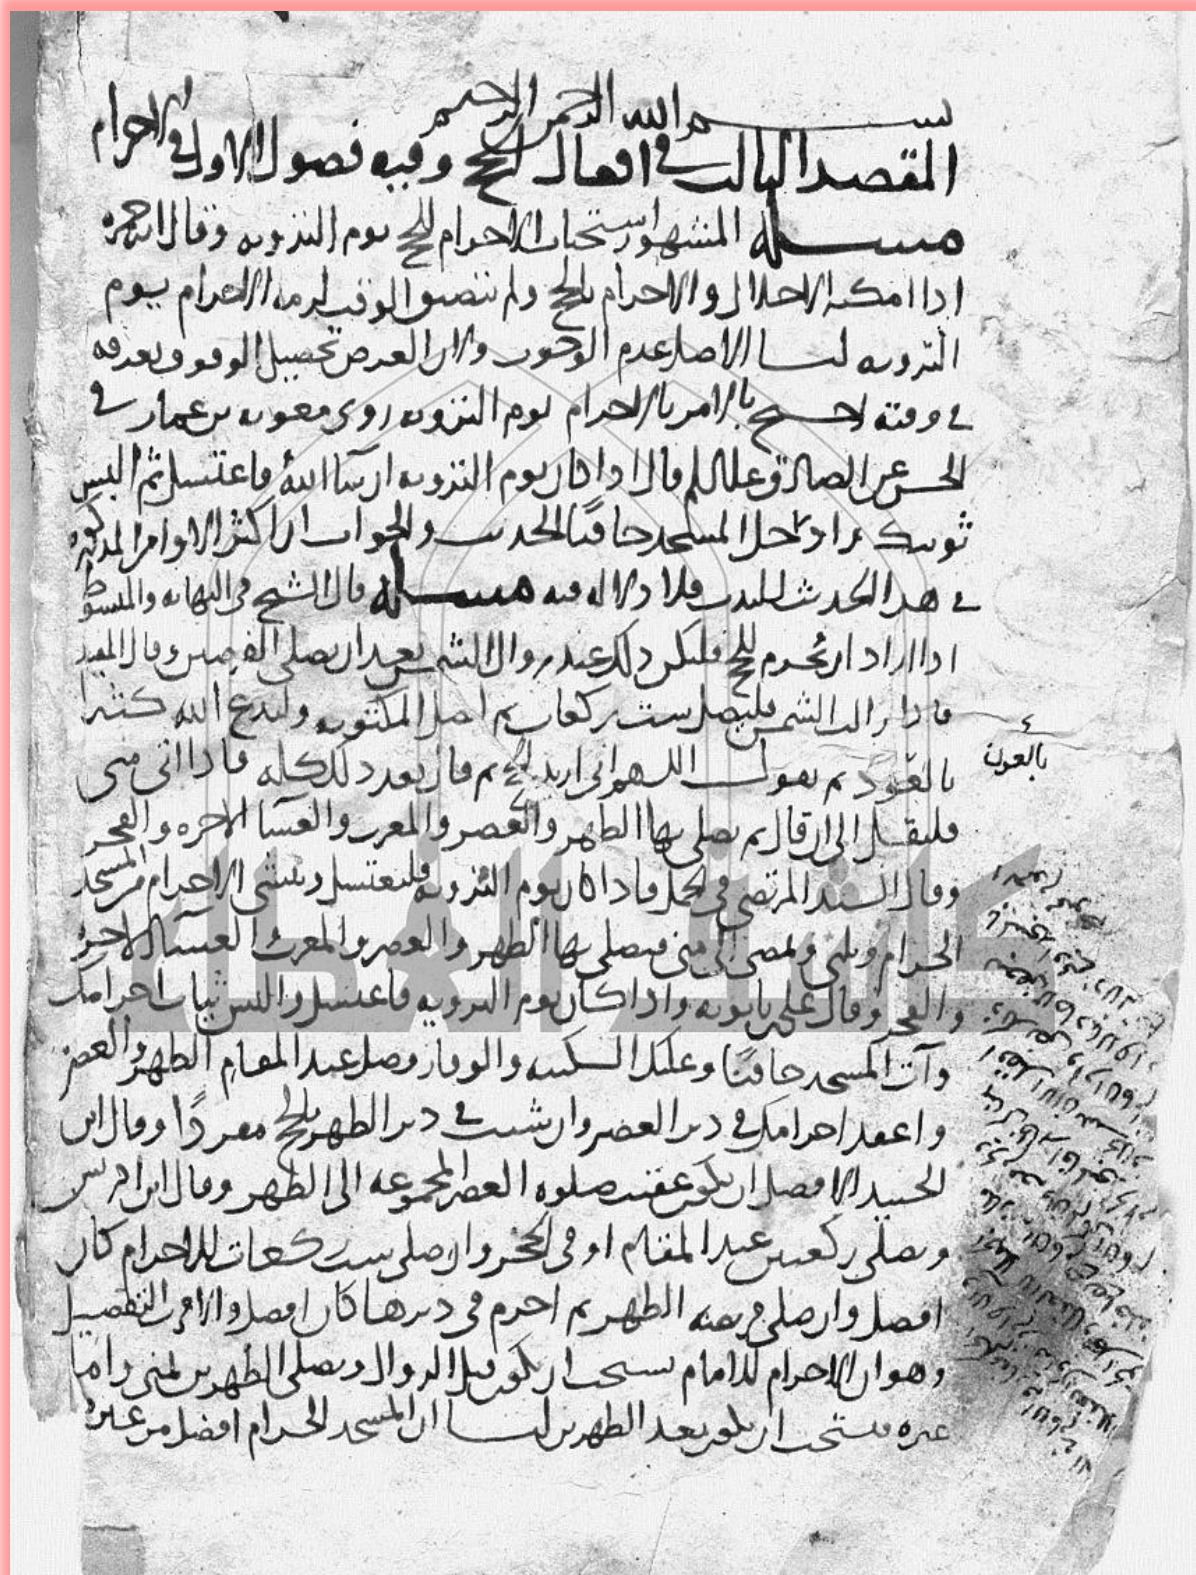 بسم الله الرحمن الرحيم
المقصد الثالث في افعال الحج وفيه فصول الاول في الاحرام
مسئله المشهور استحباب الاحرام للحج يوم الترويه وقال ابن حمزه
اذا امكنه الاحلال والاحرام بالحج ولم يتضيق الوقت لزمه الاحرام يوم
الترويه لنا الاصل عدم الوجوب ولان الغرض تحصيل الوقوف بعرفه
في وقته احتج بالامر بالاحرام يوم الترويه روى معويه بن عمار في
الحسن عن الصادق عليه السلم قال اذا كان يوم الترويه ان شاء الله فاغتسل ثم البس
ثوبيك وادخل المسجد حافيًا الحديث والجواب ان اكثر الاوامر المذكوره
في هذا الحديث للندب فلا دلاله فيه مسئله قال الشيخ في النهايه والمبسوط
اذا اراد ان يحرم للحج فليكن ذلك عند زوال الشمس بعد ان يصلي الفرضين وقال المفيد
فاذا زالت الشمس فليصل ست ركعات ثم اصل المكتوبه وليدع الله كثيرا
بالعون
بالعود ثم يقول اللهم اني اريد الحج ثم قال بعد ذلك كله فاذا اتى منى
فليقل الى ان قال ثم يصلي بها الظهر والعصر والمغرب والعشا الاخره والفجر
وقال السيد المرتضى في الجمل فاذا كان يوم الترويه فليغتسل وينشئ الاحرام من المسجد
الحرام ويلبي ويمضي الى منى فيصلي بها الظهر والعصر والمغرب والعشا الاخره
والفجر وقال علي بن بابويه واذا كان يوم الترويه فاغتسل والبس ثياب احرامك
وآت المسجد حافيًا وعليك السكينه والوقار وصل عند المقام الظهر والعصر
واعقد احرامك في دبر العصر وان شئت في دبر الظهر بالحج مفردًا وقال ابن
الجنيد الافضل ان يكون عقيب صلوه العصر المجموعه الى الظهر وقال ابن ادريس
ويصلي ركعتين عند المقام او في الحجر وان صلى ست ركعات للاحرام كان
افضل وان صلى فريضه الظهر ثم احرم في دبرها كان افضل والاقرب التفصيل
وهو ان الاحرام للامام يستحب ان يكون قبل الزوال ويصلي الظهرين بمنى واما
غيره فيستحب ان يكون بعد الظهرين لنا ان المسجد الحرام افضل من غيره